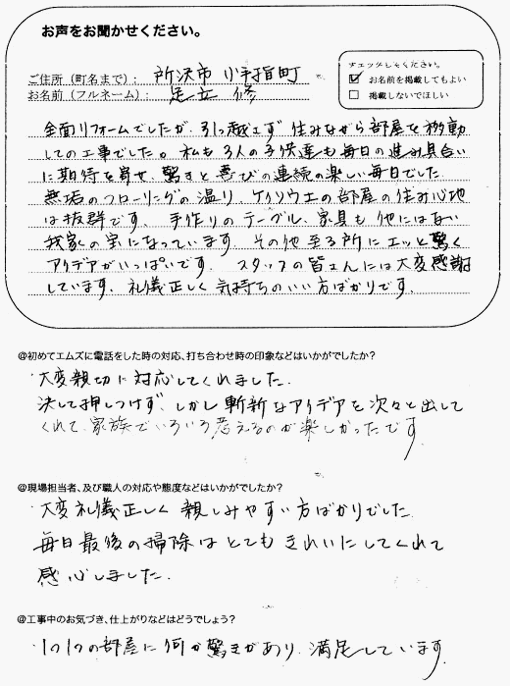 お声をお聞かせください。
チェックしてください。
ご住所（町名まで）： 所沢市 小手指町
☑ お名前を掲載してもよい
お名前（フルネーム）： 足立 修
☐ 掲載しないでほしい
全面リフォームでしたが、引っ越さず 住みながら部屋を移動
しての工事でした。私も3人の子供達も毎日の進み具合い
に期待を寄せ、驚きと喜びの連続の楽しい毎日でした。
無垢のフローリングの温り、ケイソウ土の部屋の住み心地
は抜群です。手作りのテーブル、家具も他にはない
我家の宝になっています。その他至る所にエッと驚く
アイデアがいっぱいです。スタッフの皆さんには大変感謝
しています、礼儀正しく気持ちのいい方ばかりです。
@初めてエムズに電話をした時の対応、打ち合わせ時の印象などはいかがでしたか？
・大変親切に対応してくれました。
決して押しつけず、しかし斬新なアイデアを次々と出して
くれて、家族でいろいろ考えるのが楽しかったです。
@現場担当者、及び職人の対応や態度などはいかがでしたか？
・大変礼儀正しく親しみやすい方ばかりでした。
毎日最後の掃除はとてもきれいにしてくれて
感心しました。
@工事中のお気づき、仕上がりなどはどうでしょう？
・1つ1つの部屋に何か驚きがあり、満足しています。